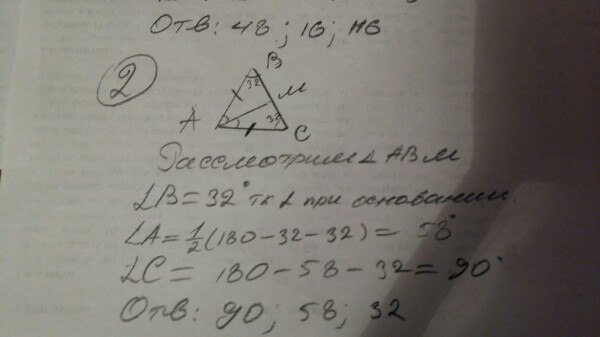 Отв: 48; 16; 116
2
B
32
M
A
32
C
Рассмотрим ∠ ABM
∠B = 32° тк ∠ при основании.
∠A = 1/2 (180 - 32 - 32) = 58°
∠C = 180 - 58 - 32 = 90°
Отв: 90; 58; 32